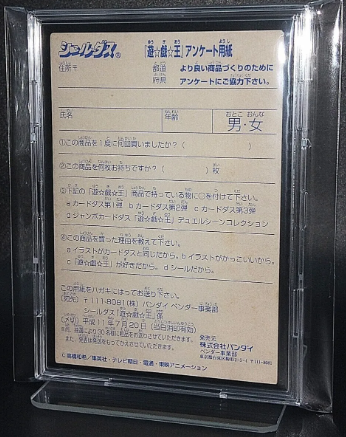 シールダス® 「遊☆戯☆王」アンケート用紙
住所〒 都道府県 より良い商品づくりのために
アンケートにご協力下さい。
氏名 年齢 男・女
①この商品を1度に何回買いましたか？（ ）
②この商品を何枚お持ちですか？（ ）枚
③下記の「遊☆戯☆王」商品で持っている物に○を付けて下さい。
a カードダス第1弾 b カードダス第2弾 c カードダス第3弾
d ジャンボカードダス「遊☆戯☆王」デュエルシーンコレクション
④この商品を買った理由を教えて下さい。
a イラストがカードダスと同じだから。b イラストがかっこいいから。
c 「遊☆戯☆王」が好きだから。d シールだから。
この用紙をハガキにはってお送り下さい。
〒111-8081(株)バンダイ ベンダー事業部
シールダス「遊☆戯☆王」係
平成11年7月20日(当日消印有効)
発売元
株式会社バンダイ
ベンダー事業部
©高橋和希／集英社・テレビ朝日・電通・東映アニメーション